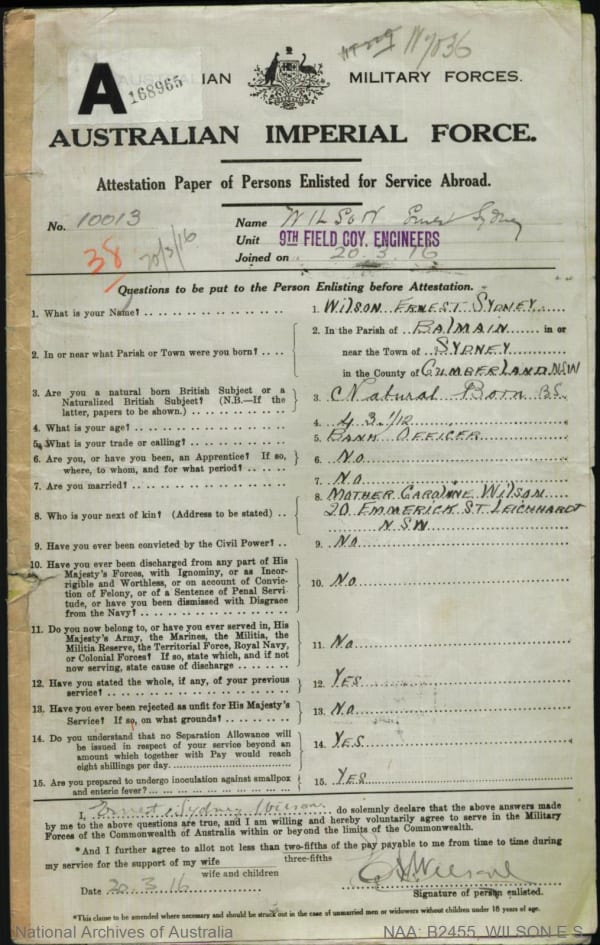 W7036
A
168965
AUSTRALIAN MILITARY FORCES.
AUSTRALIAN IMPERIAL FORCE.
Attestation Paper of Persons Enlisted for Service Abroad.
No. 10013
Name WILSON Ernest Sydney
38 20/3/16
Unit 9TH FIELD COY. ENGINEERS
Joined on 20.3.16
Questions to be put to the Person Enlisting before Attestation.
1. What is your Name?
1. WILSON ERNEST SYDNEY
2. In or near what Parish or Town were you born?
2. In the Parish of BALMAIN in or
near the Town of SYDNEY
in the County of CUMBERLAND. NSW
3. Are you a natural born British Subject or a
Naturalized British Subject? (N.B.—If the
latter, papers to be shown.)
3. Natural Born B.S.
4. What is your age?
4. 43 1/12
5. What is your trade or calling?
5. BANK OFFICER
6. Are you, or have you been, an Apprentice? If so,
where, to whom, and for what period?
6. No
7. Are you married?
7. No
8. Who is your next of kin? (Address to be stated)
8. MOTHER CAROLINE WILSON
20 EMMERICK ST. LEICHHARDT
N.S.W.
9. Have you ever been convicted by the Civil Power?
9. No
10. Have you ever been discharged from any part of His
Majesty's Forces, with Ignominy, or as Incor-
rigible and Worthless, or on account of Convic-
tion of Felony, or of a Sentence of Penal Servi-
tude, or have you been dismissed with Disgrace
from the Navy?
10. No
11. Do you now belong to, or have you ever served in, His
Majesty's Army, the Marines, the Militia, the
Militia Reserve, the Territorial Force, Royal Navy,
or Colonial Forces? If so, state which, and if not
now serving, state cause of discharge
11. No
12. Have you stated the whole, if any, of your previous
service?
12. YES
13. Have you ever been rejected as unfit for His Majesty's
Service? If so, on what grounds?
13. No
14. Do you understand that no Separation Allowance will
be issued in respect of your service beyond an
amount which together with Pay would reach
eight shillings per day.
14. YES
15. Are you prepared to undergo inoculation against smallpox
and enteric fever?
15. YES
I, Ernest Sydney Wilson do solemnly declare that the above answers made
by me to the above questions are true, and I am willing and hereby voluntarily agree to serve in the Military
Forces of the Commonwealth of Australia within or beyond the limits of the Commonwealth.
*And I further agree to allot not less than two-fifths of the pay payable to me from time to time during
three-fifths
my service for the support of my wife
wife and children
Date 20.3.16
Wilson
Signature of person enlisted.
*This clause to be amended where necessary and should be struck out in the case of unmarried men or widowers without children under 18 years of age.
National Archives of Australia
NAA: B2455, WILSON E S